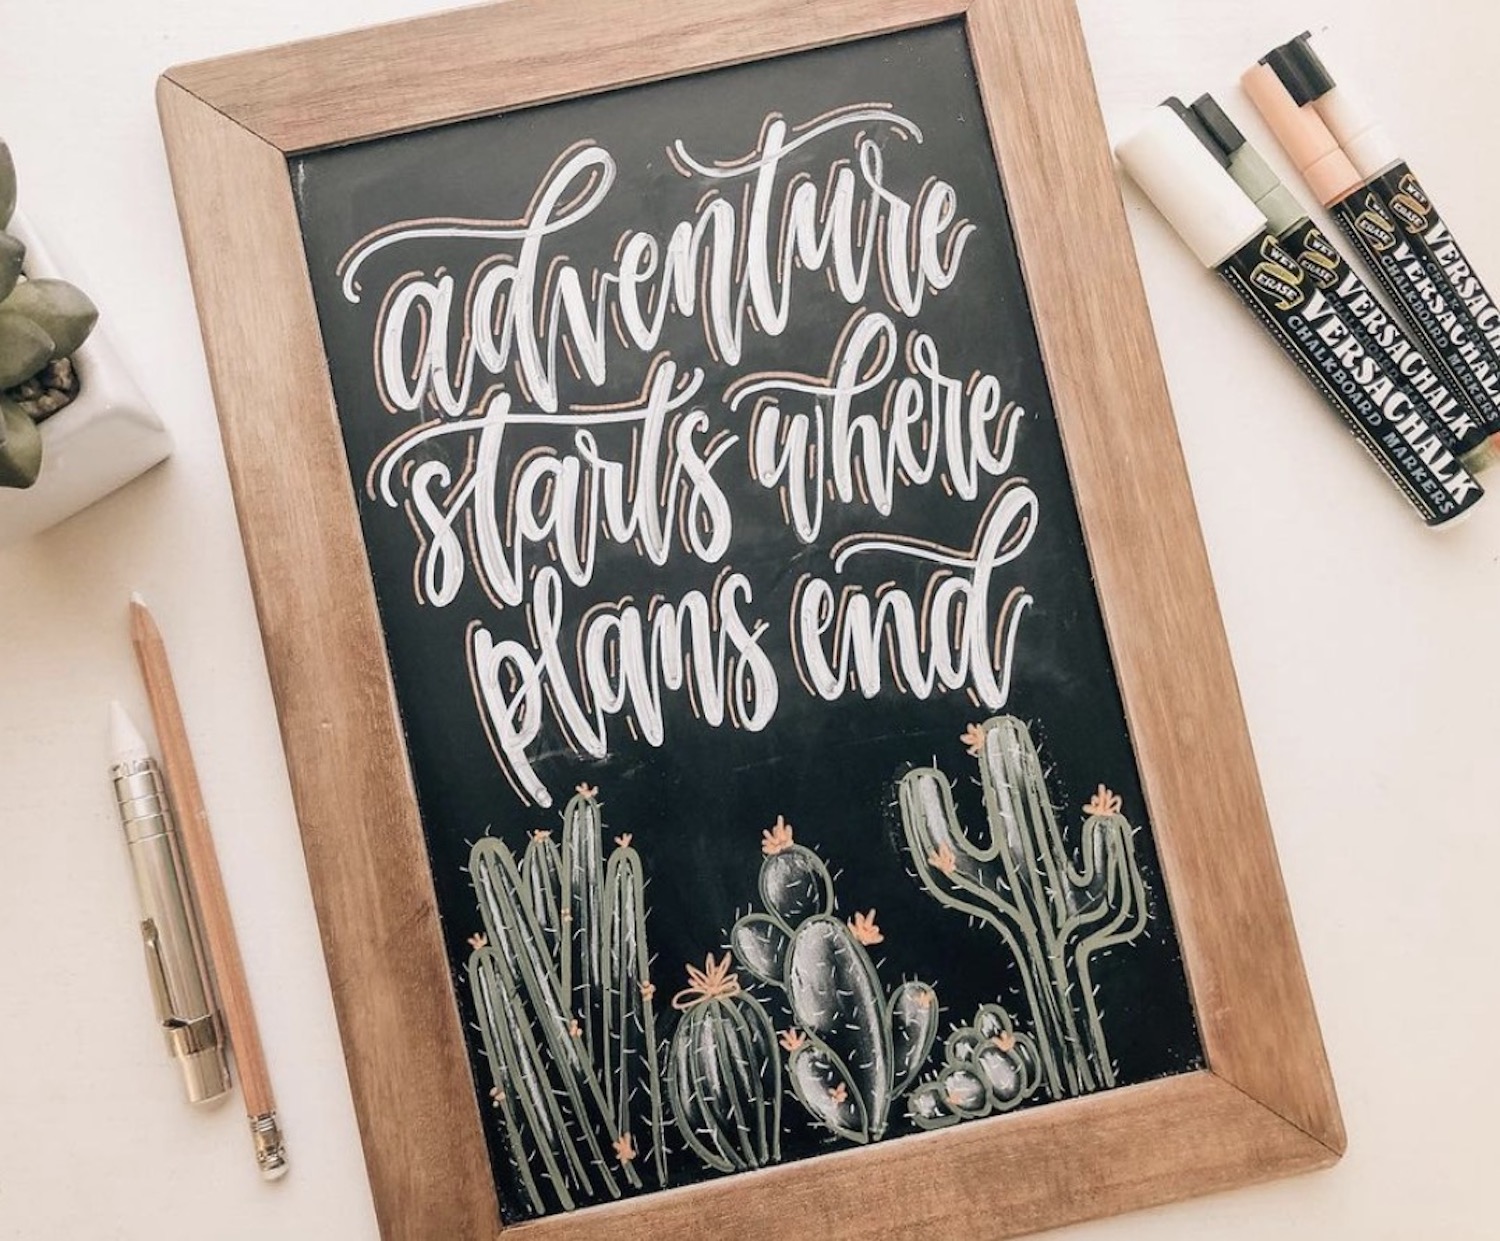 adventure
starts where
plans end
WET
ERASE
VERSACHALK
CHALKBOARD MARKERS
WET
ERASE
VERSACHALK
WET
ERASE
VERSACHALK
CHALKBOARD MARKERS
WET
ERASE
VERSACHALK